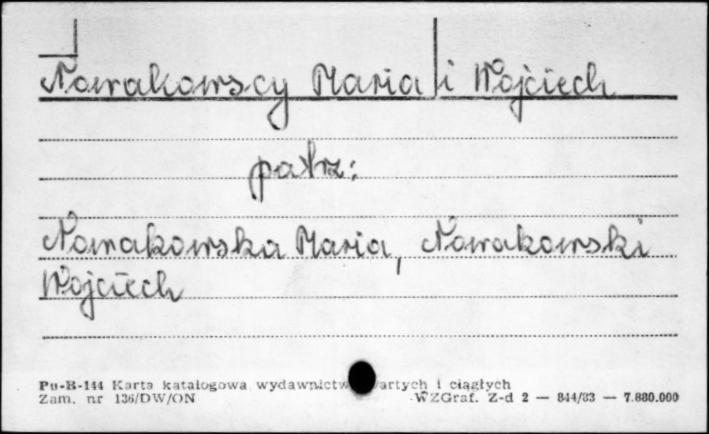 Nowakowscy Maria i Wojciech
patrz:
Nowakowska Maria, Nowakowski
Wojciech
Pu-B-144 Karta katalogowa wydawnictw artych i ciągłych
Zam. nr 136/DW/ON WZGraf. Z-d 2 — 844/83 — 7.880.000